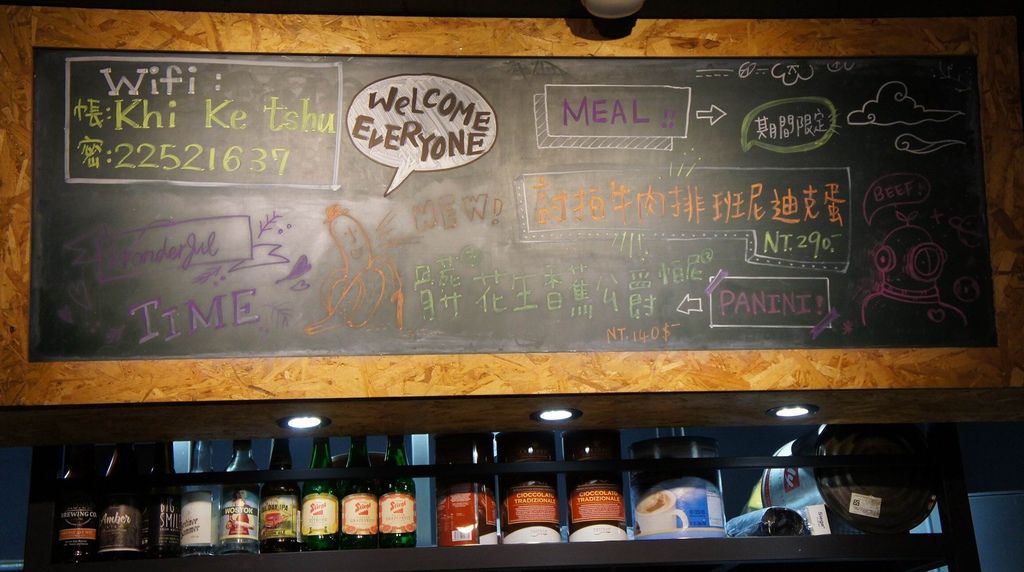 Wifi:
帳:Khi Ke tshu
密:22521637
WELCOME
EVERYONE
MEAL!!
期間限定
討拍牛肉排班尼迪克蛋
NT.290-
BEEF!
NEW!
Wonderful
TIME
花生香蕉公爵帕尼尼
PANINI!
NT.140$-
BREWING CO.
Amber
BIG
SMILE
WOSTOK
IPA
Stiegl
Stiegl
Stiegl
CIOCCOLATA
TRADIZIONALE
CIOCCOLATA
TRADIZIONALE